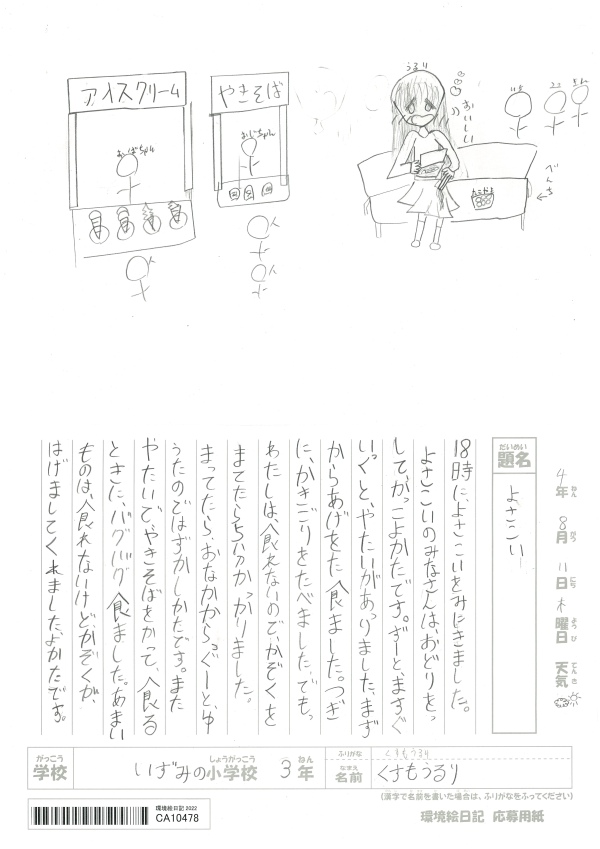 アイスクリーム
やきそば
おばちゃん
おじちゃん
うるり
おいしい
べんち
4年 8月 11日 木曜日 天気
ねん がつ にち よう び てんき
題名
だいめい
よさこい
18時に、よさこいをみにきました。
よさこいのみなさんは、おどりをっ
して、がっこよかたです。ずーと、ますぐ
いっくと、やたいがあっりました、まず
からあげをた食ました。つぎ
に、かきごりをたべました。でもっ
わたしは、食れないので、かぞくを
まてたら5分かっかりました。
まってたら、おなかからっぐーと、ゆ
うたのではずかしかたです。また
やたいで、やきそばをかって、食る
ときに、バグバグ食ました。あまい
ものは、食れないけど、かぞくが、
はげましてくれました。よかたです。
がっこう
学校
いずみの小学校 3年
しょうがっこう ねん
ふりがな
くすもうるり
なまえ
名前
くすもうるり
(漢字で名前を書いた場合は、ふりがなをふってください)
環境絵日記 2022
CA10478
環境絵日記 応募用紙